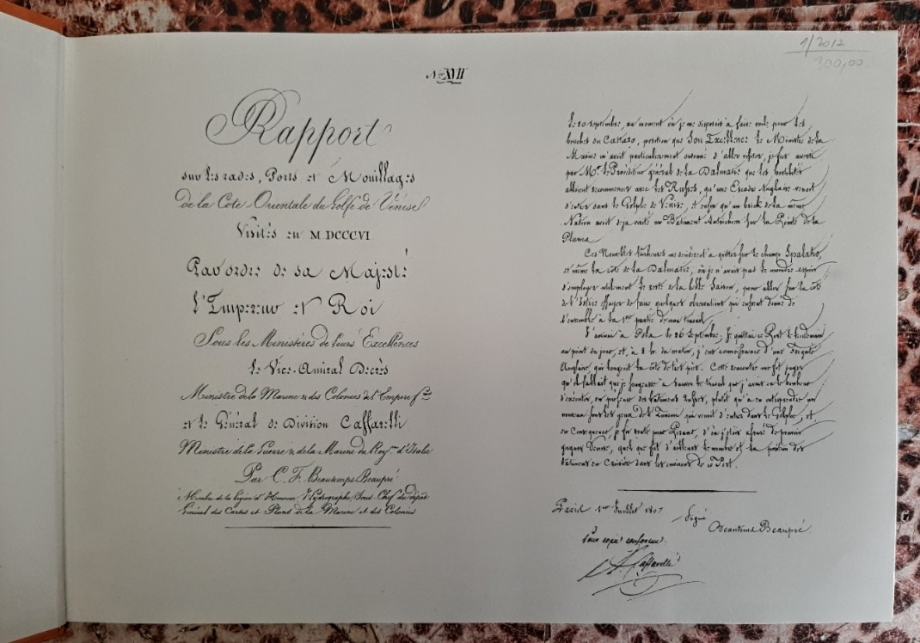 4/2012
300,00
No XVII
Rapport
sur les rades, Ports et Mouillages
de la Côte Orientale du Golfe de Vénise
Visités en M.DCCCVI
Par ordre de sa Majesté
l'Empereur et Roi
Sous les Ministères de leurs Excellences
le Vice-Amiral Decrès
Ministre de la Marine & des Colonies de l'Empire f.
et le Général de Division Caffarelli
Ministre de la Guerre & de la Marine du Roy. d'Italie
Par C. F. Beautemps Beaupré
Membre de la Légion d'Honneur, Hydrographe, Sous-Chef du dépôt
Général des Cartes et Plans de la Marine et des Colonies
le 10 septembre, au moment où je me disposois à faire voile pour les
bouches du Cattaro, position que Son Excellence le Ministre de la
Marine m'avoit particulièrement ordonné d'aller visiter, je fus averti
par Mr. le Provéditeur général de la Dalmatie que les hostilités
alloient recommencer avec les Russes, qu'une Escadre Anglaise venoit
d'entrer dans le Golphe de Venise, et enfin qu'un brick de la même
Nation avoit déjà visité un Bâtiment Autrichien sur la Pointe de la
Planca.
Ces Nouvelles à quitter sur le champ Spalatro,
et même la côte de la Dalmatie, où je n'avois pas le moindre espoir
d'employer utilement le reste de la belle Saison, pour aller sur la côte
de l'Istrie de faire quelques observations qui
à la 1ère partie de mon travail.
J'arrivai à Pola le 16 Septembre; Je quittai ce Port le lendemain
au point du jour, et, à 8 h. du matin, j'eus connoissance d'une frégate
Anglaise, qui longeait la côte de très près. Cette rencontre me fit juger
qu'il falloit que je songeasse à sauver le travail que j'avois eu le bonheur
d'exécuter, en présence des bâtiments Russes, plutôt qu'à en entreprendre un
nouveau sous les yeux de l'Ennemi qui venoit d'entrer dans le Golphe, et
en Conséquence, je fis route pour
gagner Venise, quels que fût d'ailleurs le nombre et la position des
bâtimens en Croisière dans les environs de ce Port.
Paris 1er Juillet 1807
Signé
Beautems Beaupré
Pour copie conforme
A. Caffarelli